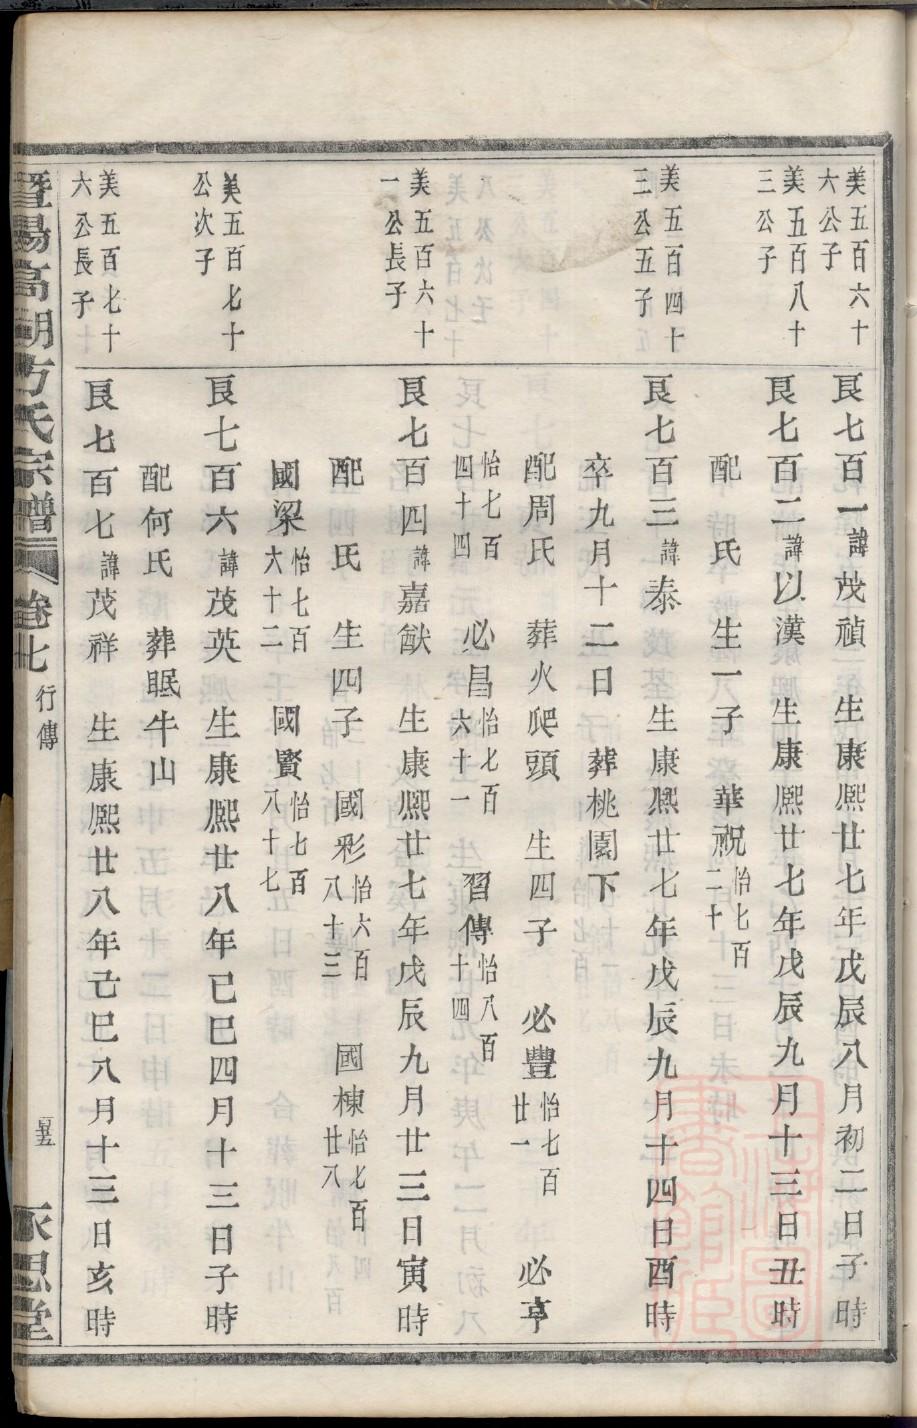 美五百六十
六公子
艮七百一諱茂禎　生康熈廿七年戊辰八月初二日子時
美五百八十
三公子
艮七百二諱以漢　生康熈廿七年戊辰九月十三日丑時
配　氏　生一子　華祝怡七百二十
美五百四十
三公五子
艮七百三諱泰　生康熈廿七年戊辰九月十四日酉時
卒九月十二日　葬桃園下
配周氏　葬火爬頭　生四子　必豐怡七百廿一　必亨
怡七百四十四　必昌怡七百六十一　習傳怡八百十四
美五百六十
一公長子
艮七百四諱嘉猷　生康熈廿七年戊辰九月廿三日寅時
配　氏　生四子　國彩怡六百八十三　國棟怡七百廿八
國梁怡七百六十二　國賢怡七百八十七
美五百七十
公次子
艮七百六諱茂英　生康熈廿八年已巳四月十三日子時
配何氏　葬眠牛山
美五百七十
六公長子
艮七百七諱茂祥　生康熈廿八年己巳八月十三日亥時
暨陽高湖方氏宗譜　卷七　行傳　永思堂